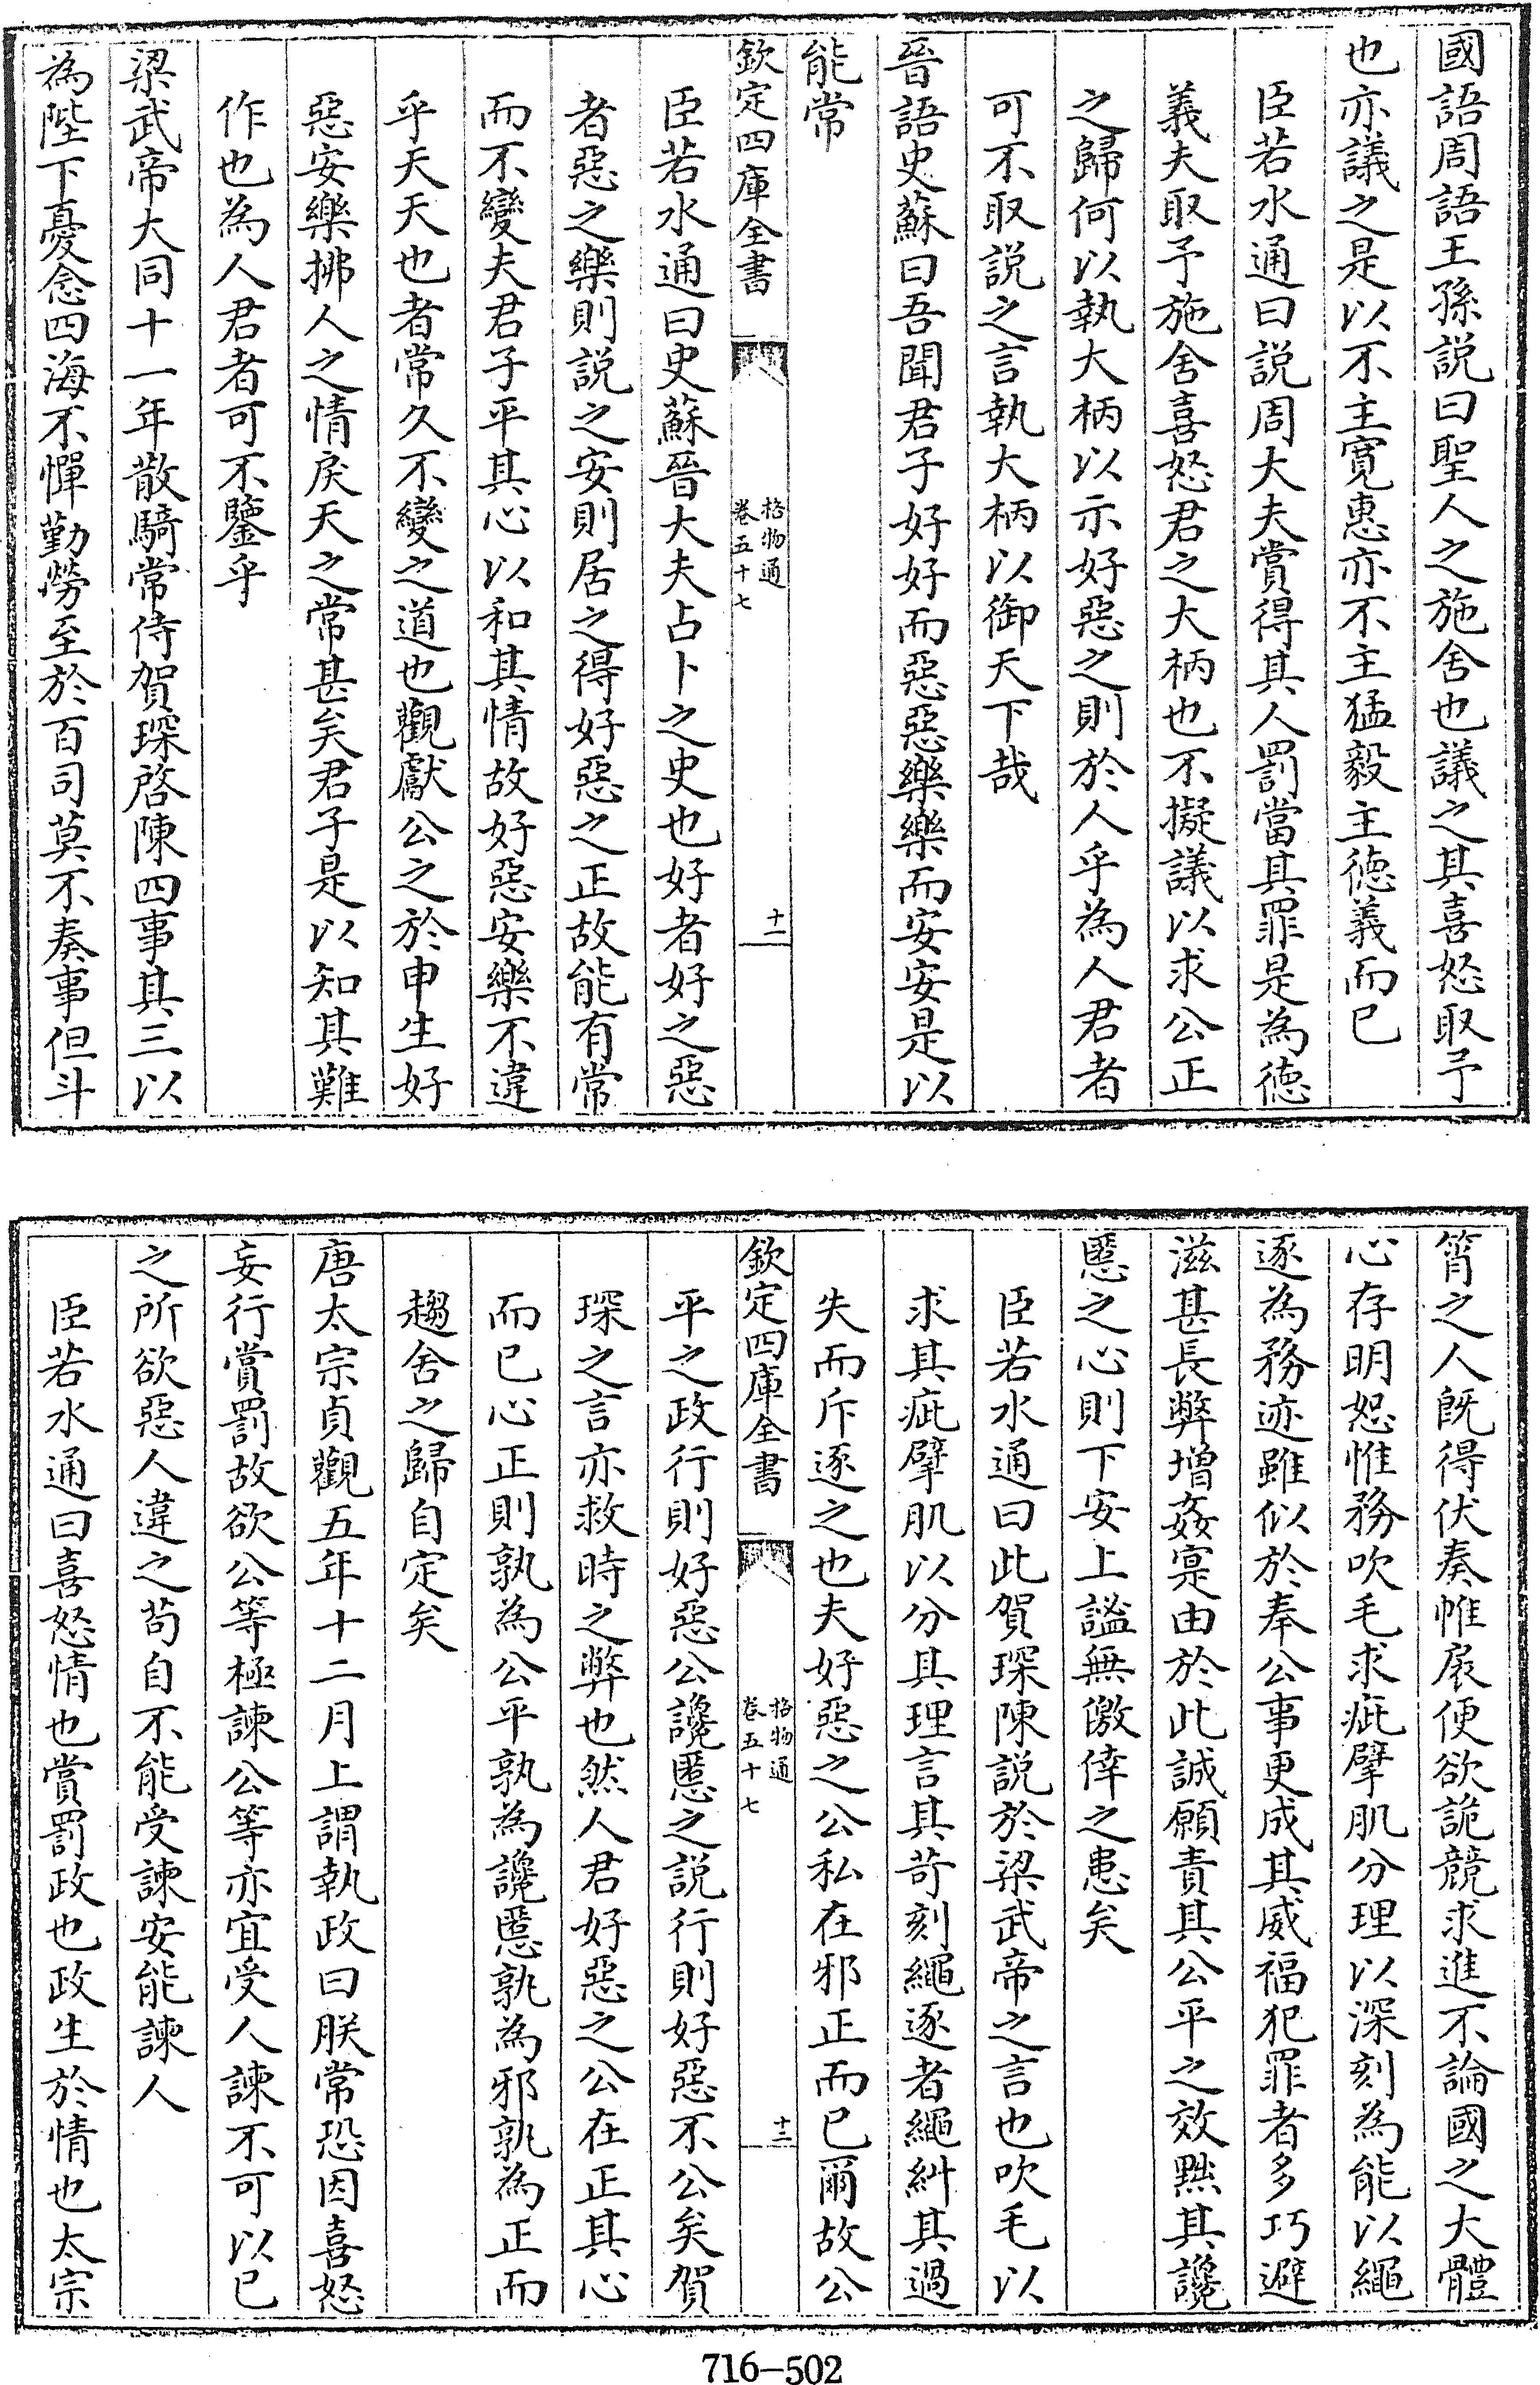 國語周語王孫説曰聖人之施舍也議之其喜怒取予
也亦議之是以不主寛惠亦不主猛毅主徳義而已
臣若水通曰説周大夫賞得其人罰當其罪是為徳
義夫取予施舍喜怒君之大柄也不擬議以求公正
之歸何以執大柄以示好惡之則於人乎為人君者
可不取説之言執大柄以御天下哉
晉語史蘇曰吾聞君子好好而惡惡樂樂而安安是以
能常
欽定四庫全書
格物通
卷五十七
十一
臣若水通曰史蘇晉大夫占卜之史也好者好之惡
者惡之樂則説之安則居之得好惡之正故能有常
而不變夫君子平其心以和其情故好惡安樂不違
乎天天也者常久不變之道也觀獻公之於申生好
惡安樂拂人之情戾天之常甚矣君子是以知其難
作也為人君者可不鑒乎
梁武帝大同十一年散騎常侍賀琛啓陳四事其三以
為陛下憂念四海不憚勤勞至於百司莫不奏事但斗
筲之人既得伏奏帷扆便欲詭競求進不論國之大體
心存明恕惟務吹毛求疵擘肌分理以深刻為能以繩
逐為務迹雖似於奉公事更成其威福犯罪者多巧避
滋甚長弊増姦寔由於此誠願責其公平之效黜其讒
慝之心則下安上謐無徼倖之患矣
臣若水通曰此賀琛陳説於梁武帝之言也吹毛以
求其疵擘肌以分其理言其苛刻繩逐者繩糾其過
失而斥逐之也夫好惡之公私在邪正而已爾故公
欽定四庫全書
格物通
卷五十七
十二
平之政行則好惡公讒慝之説行則好惡不公矣賀
琛之言亦救時之弊也然人君好惡之公在正其心
而已心正則孰為公平孰為讒慝孰為邪孰為正而
趨舍之歸自定矣
唐太宗貞觀五年十二月上謂執政曰朕常恐因喜怒
妄行賞罰故欲公等極諫公等亦宜受人諫不可以已
之所欲惡人違之苟自不能受諫安能諫人
臣若水通曰喜怒情也賞罰政也政生於情也太宗
716-502